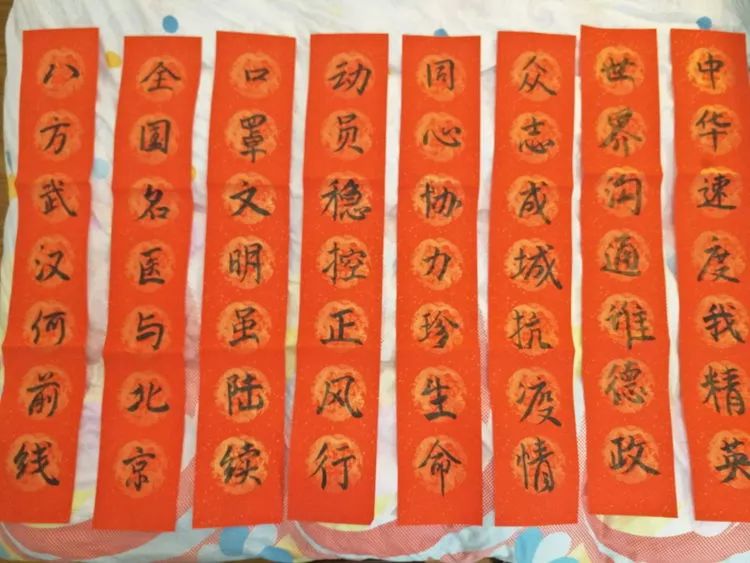 八方武汉何前线
全国名医与北京
口罩文明虽陆续
动员稳控正风行
同心协力珍生命
众志成城抗疫情
世界沟通谁德政
中华速度我精英